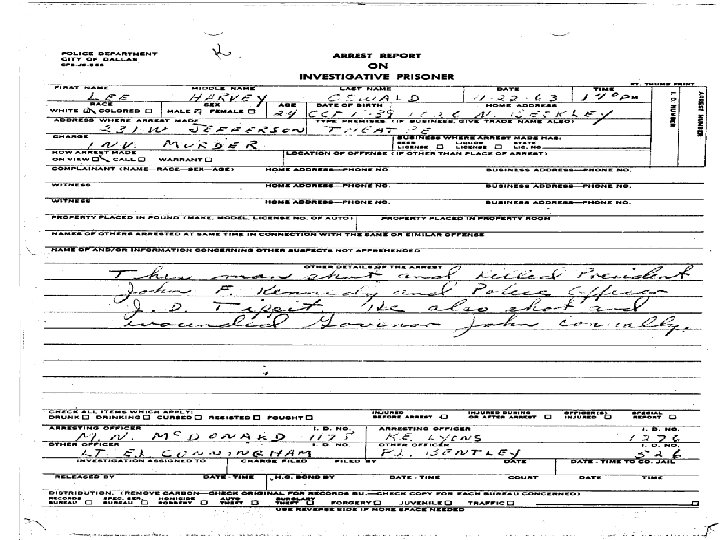 POLICE DEPARTMENT
CITY OF DALLAS
ARREST REPORT
ON
INVESTIGATIVE PRISONER
FIRST NAME MIDDLE NAME LAST NAME DATE TIME RT. THUMB PRINT
LEE HARVEY OSWALD 11-22-63 1 40 PM
RACE SEX AGE DATE OF BIRTH HOME ADDRESS
WHITE COLORED MALE FEMALE 24 N BECKLEY
ADDRESS WHERE ARREST MADE TYPE PREMISES (IF BUSINESS, GIVE TRADE NAME ALSO)
231 W JEFFERSON THEATRE
CHARGE BUSINESS WHERE ARREST MADE HAS:
INV. MURDER BEER LICENSE LIQUOR LICENSE STATE LIC. NO.
HOW ARREST MADE LOCATION OF OFFENSE (IF OTHER THAN PLACE OF ARREST)
ON VIEW CALL WARRANT
I. D. NUMBER
ARREST NUMBER
COMPLAINANT (NAME—RACE—SEX—AGE) HOME ADDRESS—PHONE NO. BUSINESS ADDRESS—PHONE NO.
WITNESS HOME ADDRESS—PHONE NO. BUSINESS ADDRESS—PHONE NO.
WITNESS HOME ADDRESS—PHONE NO. BUSINESS ADDRESS—PHONE NO.
PROPERTY PLACED IN POUND (MAKE, MODEL, LICENSE NO. OF AUTO) PROPERTY PLACED IN PROPERTY ROOM
NAMES OF OTHERS ARRESTED AT SAME TIME IN CONNECTION WITH THE SAME OR SIMILAR OFFENSE
NAME OF AND/OR INFORMATION CONCERNING OTHER SUSPECTS NOT APPREHENDED
OTHER DETAILS OF THE ARREST
This man shot and killed President
John F. Kennedy and Police Officer
J. D. Tippit. He also shot and
wounded Governor John Connally.
CHECK ALL ITEMS WHICH APPLY:
DRUNK DRINKING CURSED RESISTED FOUGHT INJURED BEFORE ARREST INJURED DURING OR AFTER ARREST OFFICER(S) INJURED SPECIAL REPORT
ARRESTING OFFICER I. D. NO. ARRESTING OFFICER I. D. NO.
M. N. McDONALD 1178 K.E. LYONS 1276
OTHER OFFICER I. D. NO. OTHER OFFICER I. D. NO.
LT E.L CUNNINGHAM P.L. BENTLEY 526
INVESTIGATION ASSIGNED TO CHARGE FILED FILED BY DATE DATE - TIME TO CO. JAIL
RELEASED BY DATE - TIME H.C. BOND BY DATE - TIME COURT DATE TIME
DISTRIBUTION. (REMOVE CARBON—CHECK ORIGINAL FOR RECORDS BU.—CHECK COPY FOR EACH BUREAU CONCERNED)
RECORDS BUREAU SPEC. SER. BUREAU HOMICIDE ROBBERY AUTO THEFT BURGLARY THEFT FORGERY JUVENILE TRAFFIC
USE REVERSE SIDE IF MORE SPACE NEEDED